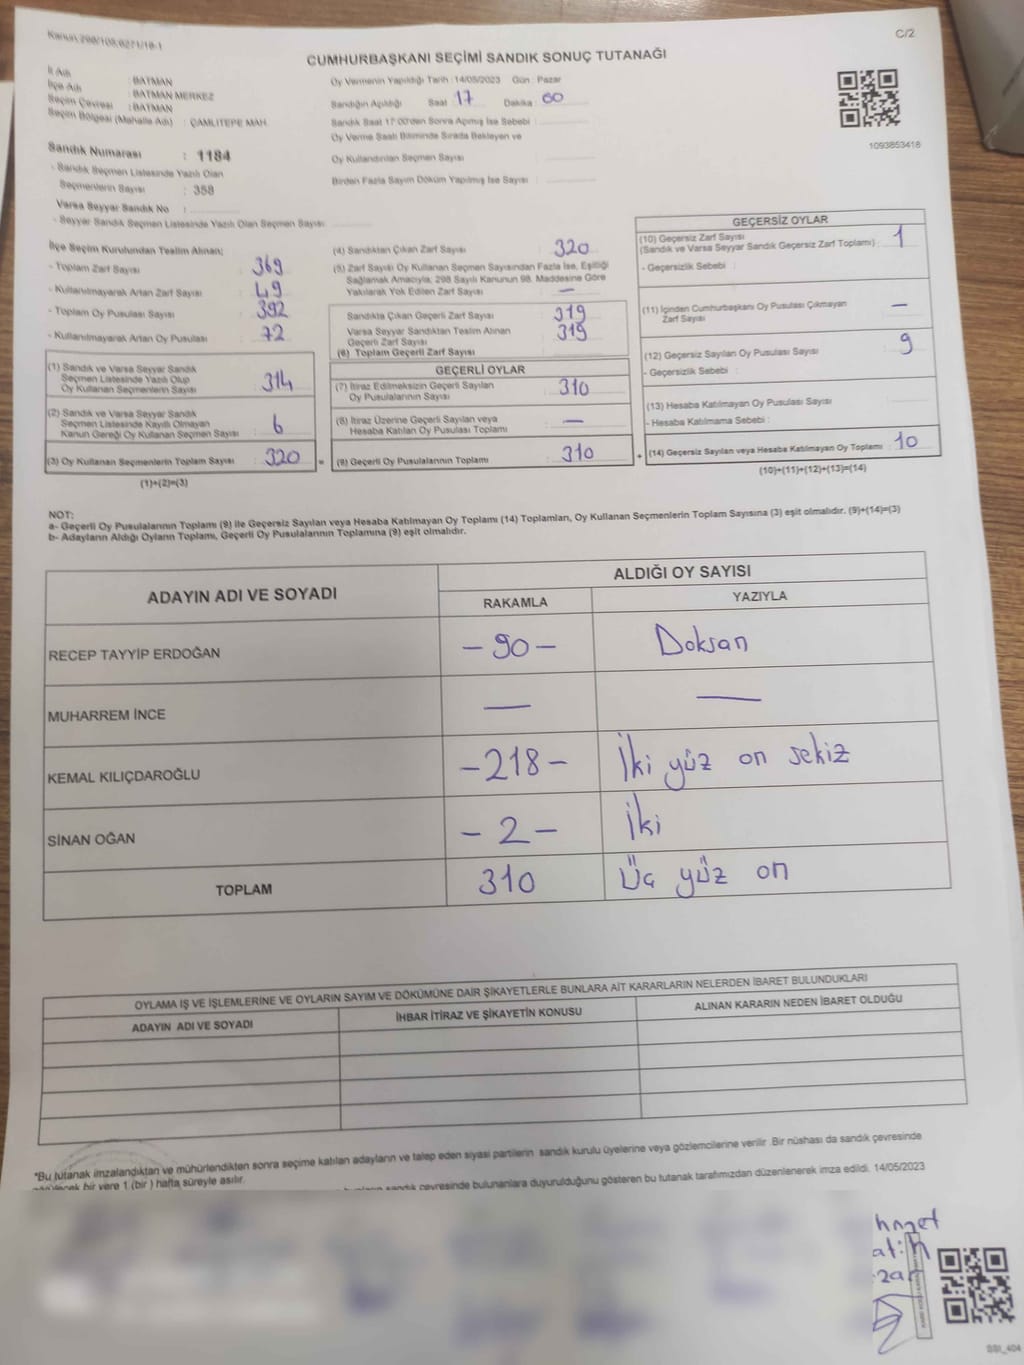 Kanun:298/105;6271/18-1
C/2
CUMHURBAŞKANI SEÇİMİ SANDIK SONUÇ TUTANAĞI
İl Adı : BATMAN
İlçe Adı : BATMAN MERKEZ
Seçim Çevresi : BATMAN
Seçim Bölgesi (Mahalle Adı) : ÇAMLITEPE MAH.
Oy Vermenin Yapıldığı Tarih :14/05/2023 Gün : Pazar
Sandığın Açıldığı Saat : 17 Dakika : 60
Sandık Saat 17:00'den Sonra Açılmış İse Sebebi :
Oy Verme Saati Bitiminde Sırada Bekleyen ve
Oy Kullandırılan Seçmen Sayısı :
Birden Fazla Sayım Döküm Yapılmış İse Sayısı :
1093853418
Sandık Numarası : 1184
- Sandık Seçmen Listesinde Yazılı Olan
Seçmenlerin Sayısı : 358
Varsa Seyyar Sandık No :
- Seyyar Sandık Seçmen Listesinde Yazılı Olan Seçmen Sayısı :
İlçe Seçim Kurulundan Teslim Alınan;
- Toplam Zarf Sayısı : 369
- Kullanılmayarak Artan Zarf Sayısı : 49
- Toplam Oy Pusulası Sayısı : 392
- Kullanılmayarak Artan Oy Pusulası : 72
(1) Sandık ve Varsa Seyyar Sandık
Seçmen Listesinde Yazılı Olup
Oy Kullanan Seçmenlerin Sayısı : 314
(2) Sandık ve Varsa Seyyar Sandık
Seçmen Listesinde Kayıtlı Olmayan
Kanun Gereği Oy Kullanan Seçmen Sayısı : 6
(3) Oy Kullanan Seçmenlerin Toplam Sayısı : 320
(1)+(2)=(3)
(4) Sandıktan Çıkan Zarf Sayısı : 320
(5) Zarf Sayısı Oy Kullanan Seçmen Sayısından Fazla İse, Eşitliği
Sağlamak Amacıyla; 298 Sayılı Kanunun 98. Maddesine Göre
Yakılarak Yok Edilen Zarf Sayısı : —
Sandıkta Çıkan Geçerli Zarf Sayısı : 319
Varsa Seyyar Sandıktan Teslim Alınan
Geçerli Zarf Sayısı : 319
(6) Toplam Geçerli Zarf Sayısı :
GEÇERLİ OYLAR
(7) İtiraz Edilmeksizin Geçerli Sayılan
Oy Pusulalarının Sayısı : 310
(8) İtiraz Üzerine Geçerli Sayılan veya
Hesaba Katılan Oy Pusulası Toplamı : —
= (9) Geçerli Oy Pusulalarının Toplamı : 310
GEÇERSİZ OYLAR
(10) Geçersiz Zarf Sayısı
(Sandık ve Varsa Seyyar Sandık Geçersiz Zarf Toplamı) : 1
- Geçersizlik Sebebi :
(11) İçinden Cumhurbaşkanı Oy Pusulası Çıkmayan
Zarf Sayısı : —
(12) Geçersiz Sayılan Oy Pusulası Sayısı : 9
- Geçersizlik Sebebi :
(13) Hesaba Katılmayan Oy Pusulası Sayısı :
- Hesaba Katılmama Sebebi :
+ (14) Geçersiz Sayılan veya Hesaba Katılmayan Oy Toplamı : 10
(10)+(11)+(12)+(13)=(14)
NOT:
a- Geçerli Oy Pusulalarının Toplamı (9) ile Geçersiz Sayılan veya Hesaba Katılmayan Oy Toplamı (14) Toplamları, Oy Kullanan Seçmenlerin Toplam Sayısına (3) eşit olmalıdır. (9)+(14)=(3)
b- Adayların Aldığı Oyların Toplamı, Geçerli Oy Pusulalarının Toplamına (9) eşit olmalıdır.
ADAYIN ADI VE SOYADI ALDIĞI OY SAYISI
RAKAMLA YAZIYLA
RECEP TAYYİP ERDOĞAN - 90 - Doksan
MUHARREM İNCE — —
KEMAL KILIÇDAROĞLU - 218 - İki yüz on sekiz
SİNAN OĞAN - 2 - İki
TOPLAM 310 Üç yüz on
OYLAMA İŞ VE İŞLEMLERİNE VE OYLARIN SAYIM VE DÖKÜMÜNE DAİR ŞİKAYETLERLE BUNLARA AİT KARARLARIN NELERDEN İBARET BULUNDUKLARI
ADAYIN ADI VE SOYADI İHBAR İTİRAZ VE ŞİKAYETİN KONUSU ALINAN KARARIN NEDEN İBARET OLDUĞU
*Bu tutanak imzalandıktan ve mühürlendikten sonra seçime katılan adayların ve talep eden siyasi partilerin sandık kurulu üyelerine veya gözlemcilerine verilir .Bir nüshası da sandık çevresinde
görülecek bir yere 1 (bir ) hafta süreyle asılır.
sandık çevresinde bulunanlara duyurulduğunu gösteren bu tutanak tarafımızdan düzenlenerek imza edildi. 14/05/2023
SSI_404